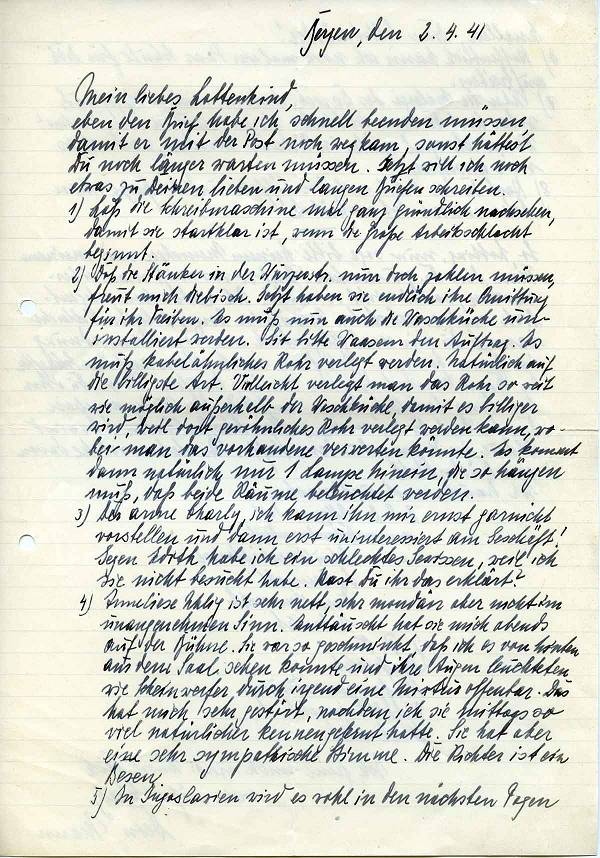 Bergen, den 2.4.41
Mein liebes Lottenkind,
eben den Brief habe ich schnell beenden müssen,
damit er mit der Post noch wegkam, sonst hättest
Du noch länger warten müssen. Jetzt will ich noch
etwas zu Deinen lieben und langen Briefen schreiben.
1) Laß die Schreibmaschine mal ganz gründlich nachsehen,
damit sie startklar ist, wenn die große Arbeitsschlacht
beginnt.
2) Daß die Stänker in der nun doch zahlen müssen,
freut mich diebisch. Jetzt haben sie endlich ihre Quittung
für ihr Treiben. Es muß nun auch die Waschküche um-
installiert werden. Gib bitte den Auftrag. Es
muß kabelähnliches Rohr verlegt werden. Natürlich auf
die billigste Art. Vielleicht verlegt man das Rohr so weit
wie möglich außerhalb der Waschküche, damit es billiger
wird, weil dort gewöhnliches Rohr verlegt werden kann, wo-
bei man das vorhandene verwerten könnte. Es kommt
dann natürlich nur 1 Lampe hinein, die so hängen
muß, daß beide Räume beleuchtet werden.
3) Der arme Charly, ich kann ihn mir ernst garnicht
vorstellen und dann erst uninteressiert am Geschäft!
Gegen Edith habe ich ein schlechtes Gewissen, weil ich
sie nicht besucht habe. Hast Du ihr das erklärt?
4) Anneliese Uhlig ist sehr nett, sehr mondän aber nicht im
unangenehmen Sinn. Enttäuscht hat sie mich abends
auf der Bühne. Sie war so geschminkt, daß ich es von hinten
aus dem Saal sehen konnte und ihre Augen leuchteten
wie Scheinwerfer durch irgend eine Mixtur offenbar. Das
hat mich sehr gestört, nachdem ich sie mittags so
viel natürlicher kennengelernt hatte. Sie hat aber
eine sehr sympathische Stimme. Die Richter ist ein
Besen.
5) In Jugoslavien wird es wohl in den nächsten Tagen